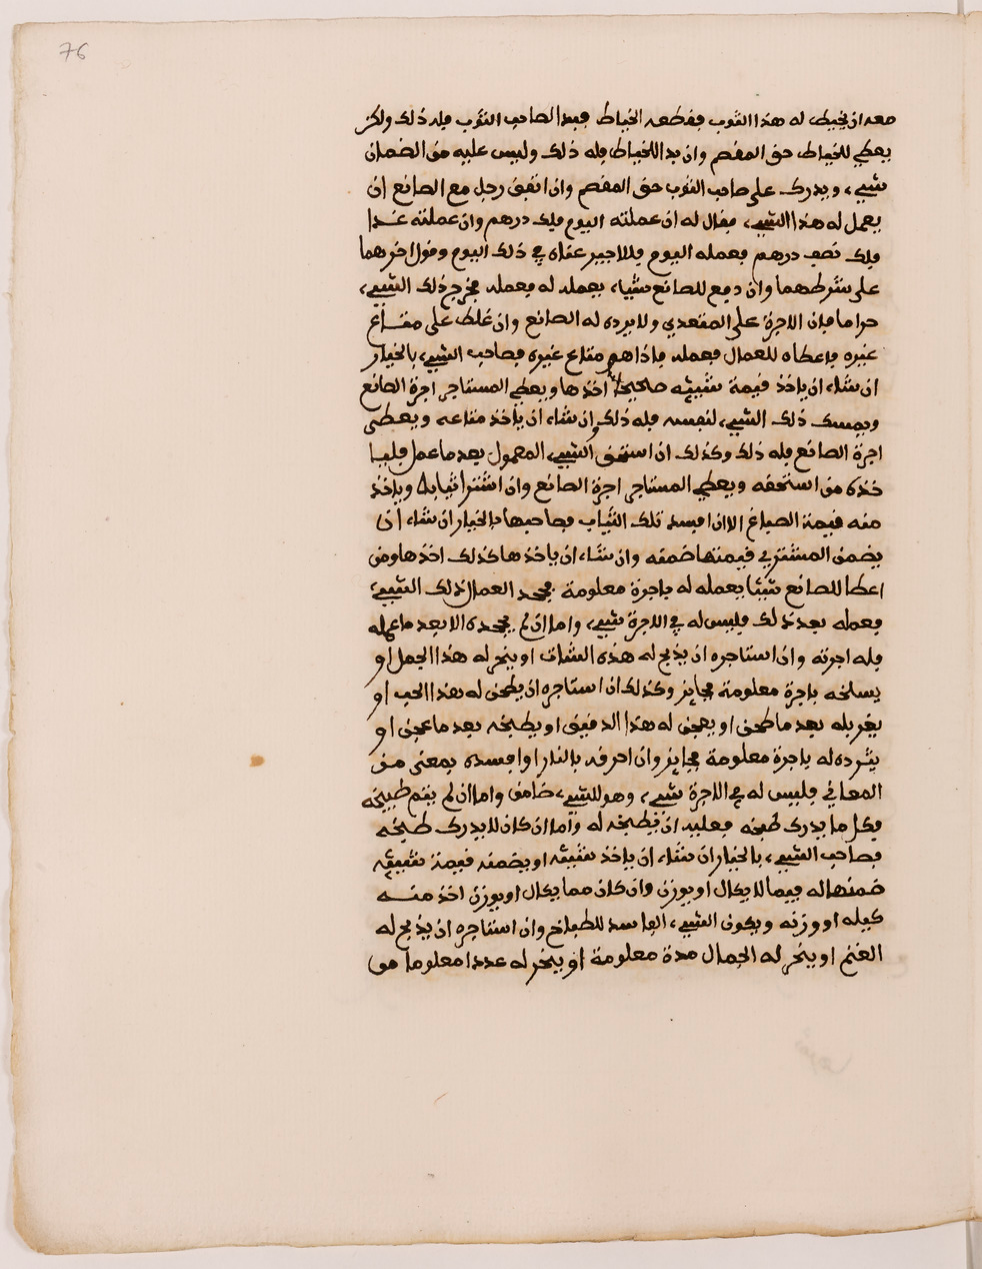 76
معه ان يخيط له هذا الثوب فقطعه الخياط فبدا لصاحب الثوب فله ذلك ولكن
يعطي للخياط حق المقص وان بدا للخياط فله ذلك وليس عليه من الضمان
شيء ويدرك على صاحب الثوب حق المقص وان اتفق رجل مع الصانع ان
يعمل له هذا الشيء فقال له ان عملته اليوم فلك درهم وان عملته غدا
فلك نصف درهم فعمله اليوم فللاجير عناه في ذلك اليوم وقول اخر هما
على شرطهما وان دفع للصانع شيئا يعمله له فعمله فخرج ذلك الشيء
حراما فان الاجرة على المتعدي ولا يرده له الصانع وان غلط على متاع
غيره فاعطاه للعمال فعمله فاذا هو متاع غيره فصاحب الشيء بالخيار
ان شاء ان ياخذ قيمة شيئه صحيحا اخذها ويعطي المستاجر اجرة الصانع
ويمسك ذلك الشيء لنفسه فله ذلك وان شاء ان ياخذ متاعه ويعطي
اجرة الصانع فله ذلك وكذلك ان استحق الشيء المعمول بعد ما عمل فليا
خذه من استحقه ويعطي المستاجر اجرة الصانع وان اشترا ثيابا وياخذ
منه قيمة الصباغ الا ان افسد تلك الثياب فصاحبها بالخيار ان شاء ان
يضمن المشتري قيمتها ضمنه وان شاء ان ياخذها كذلك اخذها ومن
اعطا للصانع شيئا يعمله له باجرة معلومة فجحد العمال ذلك الشيء
فعمله بعد ذلك فليس له في الاجرة شيء واما ان لم يجحده الا بعد ما عمله
فله اجرته وان استاجره ان يذبح له هذه الشاة او ينحر له هذا الجمل او
يسلخه باجرة معلومة فجايز وكذلك ان استاجره ان يطحن له هذا الحب او
يغربله بعد ما طحن او يعجن له هذا الدقيق او يطبخه بعد ما عجن او
يثرده له باجرة معلومة فجايز وان احرقه بالنار او افسده بمعنى من
المعاني فليس له في الاجرة شيء وهو للشيء ضامن واما ان لم يتم طبيخه
فكل ما يدرك طبخه فعليه ان يطبخه له واما ان كان لا يدرك طبخه
فصاحب الشيء بالخيار ان شاء ان ياخذ شيئه او يضمنه قيمة شيئه
ضمنها له فيما لا يكال او يوزن وان كان مما يكال او يوزن اخذ منه
كيله او وزنه ويكون الشيء الفاسد للطباخ وان استاجره ان يذبح له
الغنم او ينحر له الجمال مدة معلومة او ينحر له عددا معلوما من